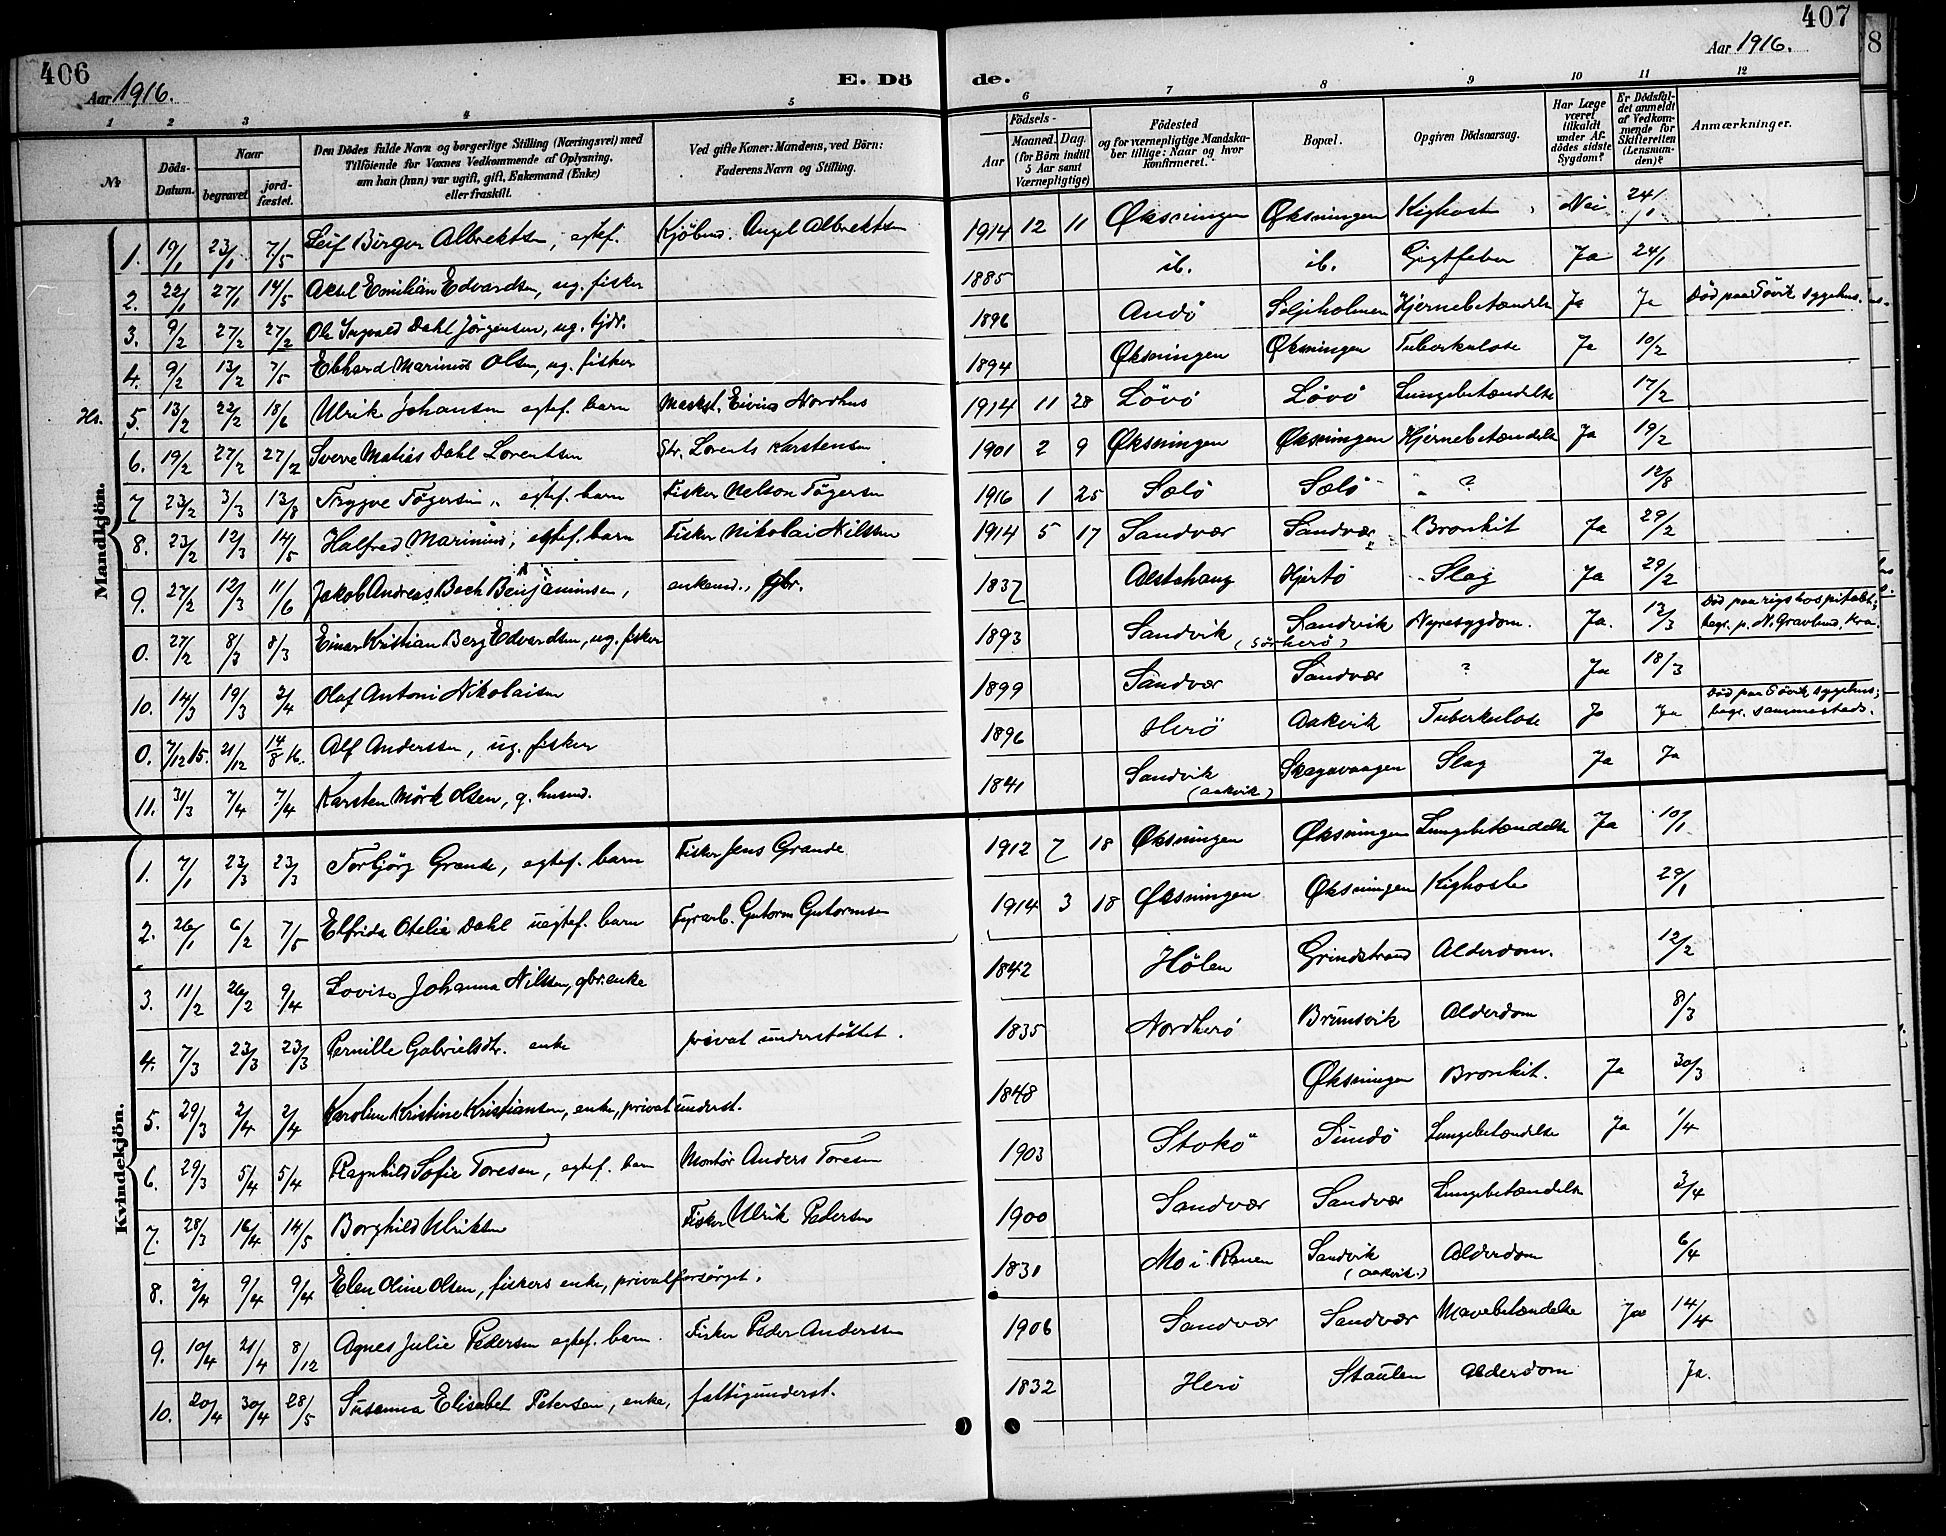 406
Aar 1916.
E. Dö
de.
407
Aar 1916.
8
1 2 3 4 5 6 7 8 9 10 11 12
№
Döds-Datum.
Naar
begravet.
jord-fæstet.
Den Dödes fulde Navn og borgerlige Stilling (Næringsvei) med
Tilföiende for Voxnes Vedkommende af Oplysning,
om han (hun) var ugift, gift, Enkemand (Enke)
eller fraskilt.
Ved gifte Koner: Mandens, ved Börn:
Faderens Navn og Stilling.
Födsels-
Aar
Maaned. Dag.
(for Börn indtil
5 Aar samt
Værnepligtige)
Födested
og for værnepligtige Mandska-
ber tillige: Naar og hvor
konfirmeret.
Bopæl.
Opgiven Dödsaarsag.
Har Læge
været
tilkaldt
under Af-
dödes sidste
Sygdom?
Er Dödsfal-
det anmeldt
af Vedkom-
mende for
Skifteretten
(Lensman-
den)?
Anmærkninger.
Mandkjön.
1. 19/1 23/1 7/5 Leif Birger Albrektsen, egtef. Kjöbmd. Angel Albrektsen 1914 12 11 Øksningen Øksningen Kighoste Nei 24/1
2. 22/1 27/1 14/5 Aksel Emilian Edvardsen, ug. fisker 1885 ib. ib. Gigtfeber Ja 24/1
3. 9/2 27/2 27/2 Ole Ingvald Dahl Jörgensen, ug. tjdr. 1896 Andö Seljeholmen Hjernebetændelse Ja Ja Död paa Sövik sygehus.
4. 9/2 13/2 7/5 Ebhard Marinus Olsen, ug. fisker 1894 Øksningen Øksningen Tuberkulose Ja 10/2
Hs. 5. 13/2 22/2 18/6 Ulrik Johansen egtef. barn Maskst. Eivind Nordhus 1914 11 28 Lövö Lövö Lungebetændelse 17/2
6. 19/2 27/2 27/2 Sverre Matias Dahl Lorentsen Gbr. Lorents Karstensen 1901 2 9 Øksningen Øksningen Hjernebetændelse Ja 19/2
7 23/2 3/3 13/8 Trygve Tögersen, egtef. barn Fisker Nelson Tögersen 1916 1 25 Sælö Sælö ? 12/8
8. 23/2 12/3 14/5 Halfred Marinius, egtef. barn Fisker Nikolai Nilssen 1914 5 17 Sandvær Sandvær Bronkit Ja 29/2
9. 27/2 12/3 11/6 Jakob Andreas Bach Benjaminsen, enkemd., gbr. 1837 Alstahaug Hjertö Slag Ja 29/2
0. 27/2 8/3 8/3 Einar Kristian Berg Edvardsen, ug. fisker 1893 Sandvik (Sörherö) Sandvik Nyresygdom. Ja. 13/3 Död paa rigshospitalet; begr. p. N. Gravlund, Kra.
10. 14/3 19/3 2/4 Olaf Antoni Nikolaisen 1899 Sandvær Sandvær ? Ja 18/3
0. 7/12 15. 21/12 14/8 16. Alf Anderssen, ug. fisker 1896 Herö Aakvik Tuberkulose Ja Ja Död paa Sövik sygehus; begr. sammesteds.
11. 31/3 7/4 7/4 Karsten Mörk Olsen, g. husmd. 1841 Sandvik (Aakvik) Skagavaagen Slag Ja Ja
Kvindekjön.
1. 7/1 23/3 23/3 Torbjörg Grande, egtef. barn Fisker Jens Grande 1912 7 18 Øksningen Øksningen Lungebetændelse Ja 10/1
2. 26/1 6/2 7/5 Elfrida Otelie Dahl uegtef. barn Fyrarb. Gutorm Gutormsen 1914 3 18 Øksningen Øksningen Kighoste 29/1
3. 11/2 26/2 9/4 Lovise Johanna Nilssen, gbr. enke 1842 Hölen Grindstrand Alderdom. 12/2
4. 7/3 23/3 23/3 Pernille Gabrielsdtr. enke privat understöttet. 1835 Nordherö Brunsvik Alderdom 8/3
5. 29/3 2/4 2/4 Karoline Kristine Kristiansen, enke, privat underst. 1848 Øksningen Bronkit. Ja 30/3
6. 29/3 5/4 5/4 Ragnhild Sofie Toresen, egtef. barn Montör Anders Toresen 1903 Stokö Sundö Lungebetændelse Ja 1/4
7. 28/3 16/4 14/5 Borghild Ulriksen Fisker Ulrik Pedersen 1900 Sandvær Sandvær Lungebetændelse 3/4
8. 2/4 9/4 9/4 Elen Oline Olsen, fiskers enke, privat forsörget. 1831 Mo i Ranen Sandvik (Aakvik.) Alderdom 6/4
9. 10/4 21/4 8/12 Agnes Julie Pedersen egtef. barn. Fisker Peder Anderssen 1906 Sandvær Sandvær Mavebetændelse Ja 14/4
10. 20/4 30/4 28/5 Susanna Elisabet Petersen, enke, fattigunderst. 1832 Herö Staulen Alderdom Ja.